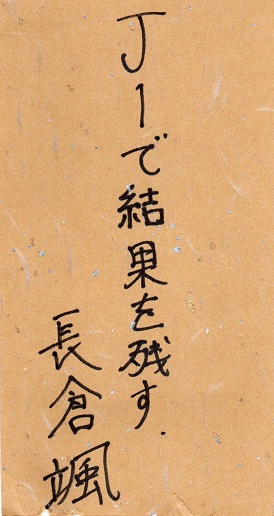 J1で結果を残す.
長倉颯